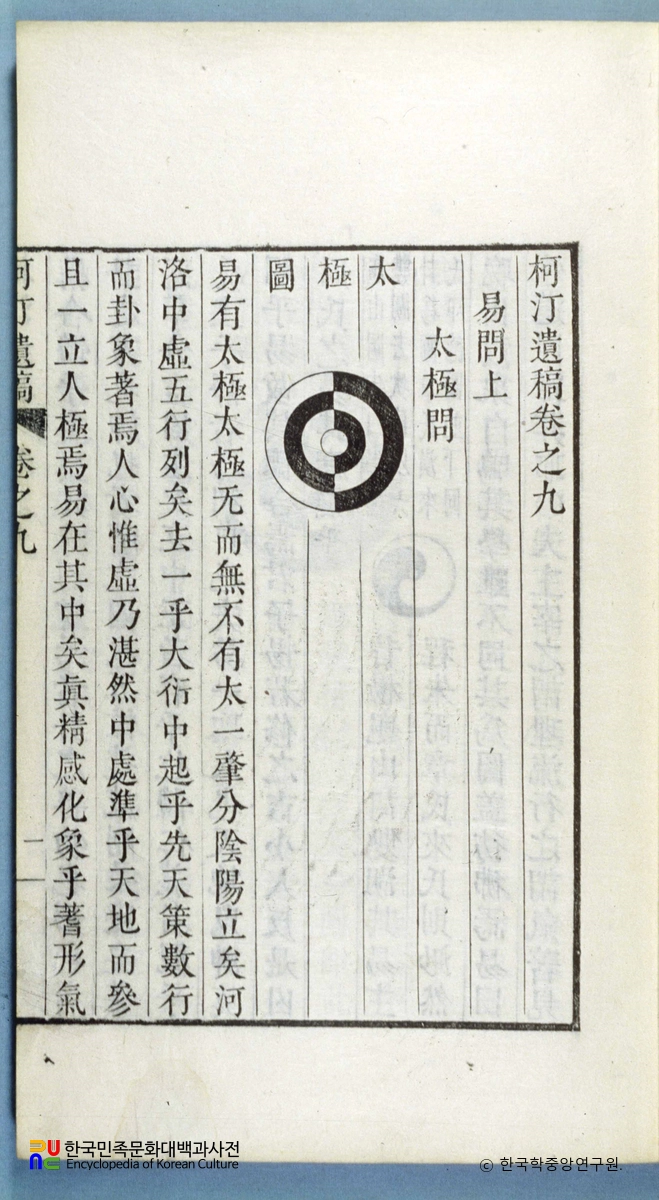 柯汀遺稿卷之九
易問上
太極問
太
極
圖
易有太極太極无而無不有太一肇分陰陽立矣河
洛中虛五行列矣去一乎大衍中起乎先天策數行
而卦象著焉人心惟虛乃湛然中處準乎天地而參
且一立人極焉易在其中矣眞精感化象乎蓍形氣
柯汀遺稿 卷之九 一
한국민족문화대백과사전
Encyclopedia of Korean Culture
© 한국학중앙연구원.